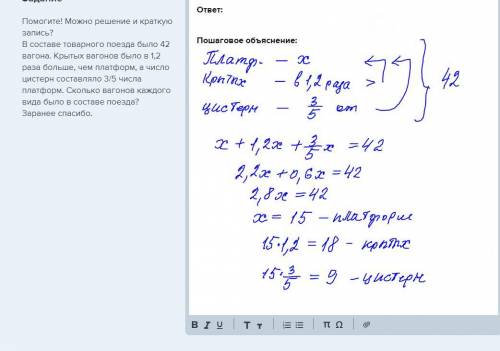 Помогите! Можно решение и краткую
запись?
В составе товарного поезда было 42
вагона. Крытых вагонов было в 1,2
раза больше, чем платформ, а число
цистерн составляло 3/5 числа
платформ. Сколько вагонов каждого
вида было в составе поезда?
Заранее спасибо.
Ответ:
Пошаговое объяснение:
Платф. – x
Крытх – в 1,2 раза >
цистерн – 3/5 от
42
x + 1,2x + 3/5 x = 42
2,2x + 0,6x = 42
2,8x = 42
x = 15 – платформ
15·1,2 = 18 – крытх
15·3/5 = 9 – цистерн
B I U T т π Ω